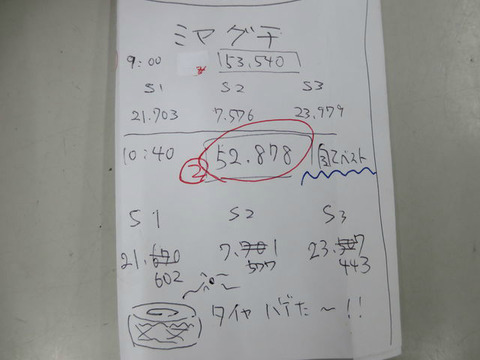 ミヤグチ
9:00 53.540
S1 S2 S3
21.703 7.576 23.979
10:40 ② 52.878 自己ベスト
S1 S2 S3
21. 7. 23.
602 577 443
タイヤ バーだ〜!!